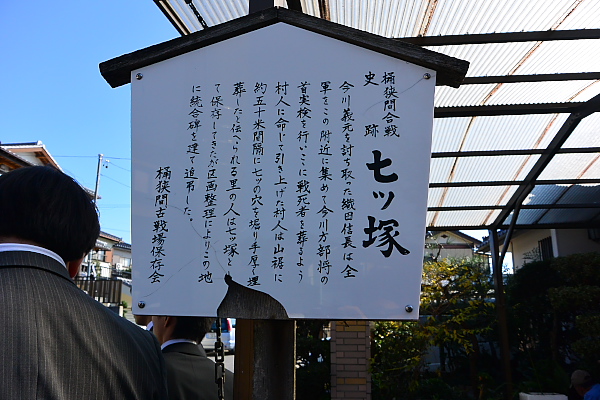 桶狭間合戦
史跡
七ツ塚
今川義元を討ち取った織田信長は全
軍をこの附近に集めて今川方部将の
首実検を行いここに戦死者を葬るよう
村人に命じて引き上げた村人は山裾に
約五十米間隔に七ッの穴を堀り手厚く埋
葬したと伝へられる里の人は七ツ塚と
て保存してきたが区画整理によりこの地
に統合碑を建て追弔した。
桶狭間古戦場保存会